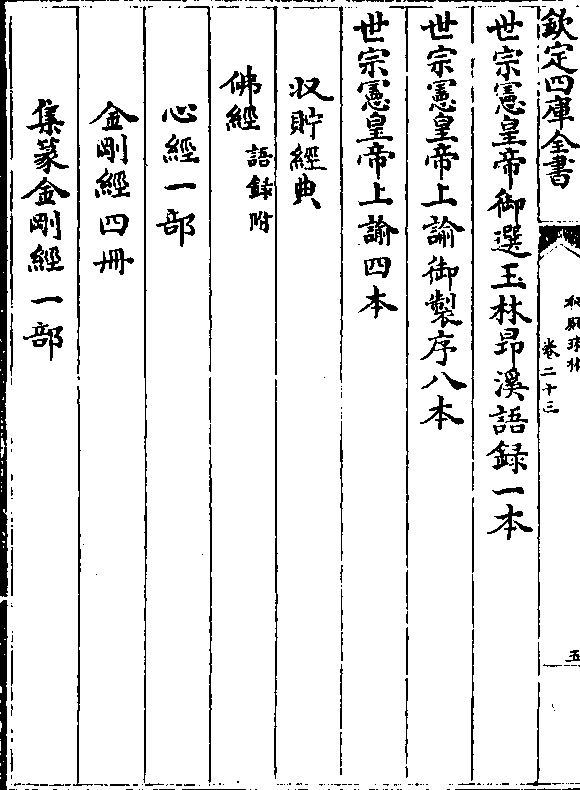 欽定四庫全書
卷二十三
五
世宗憲皇帝御選玉林䇦溪語録一本
世宗憲皇帝上諭御製序八本
世宗憲皇帝上諭四本
収貯經典
佛經語録附
心經一部
金剛經四冊
集篆金剛經一部